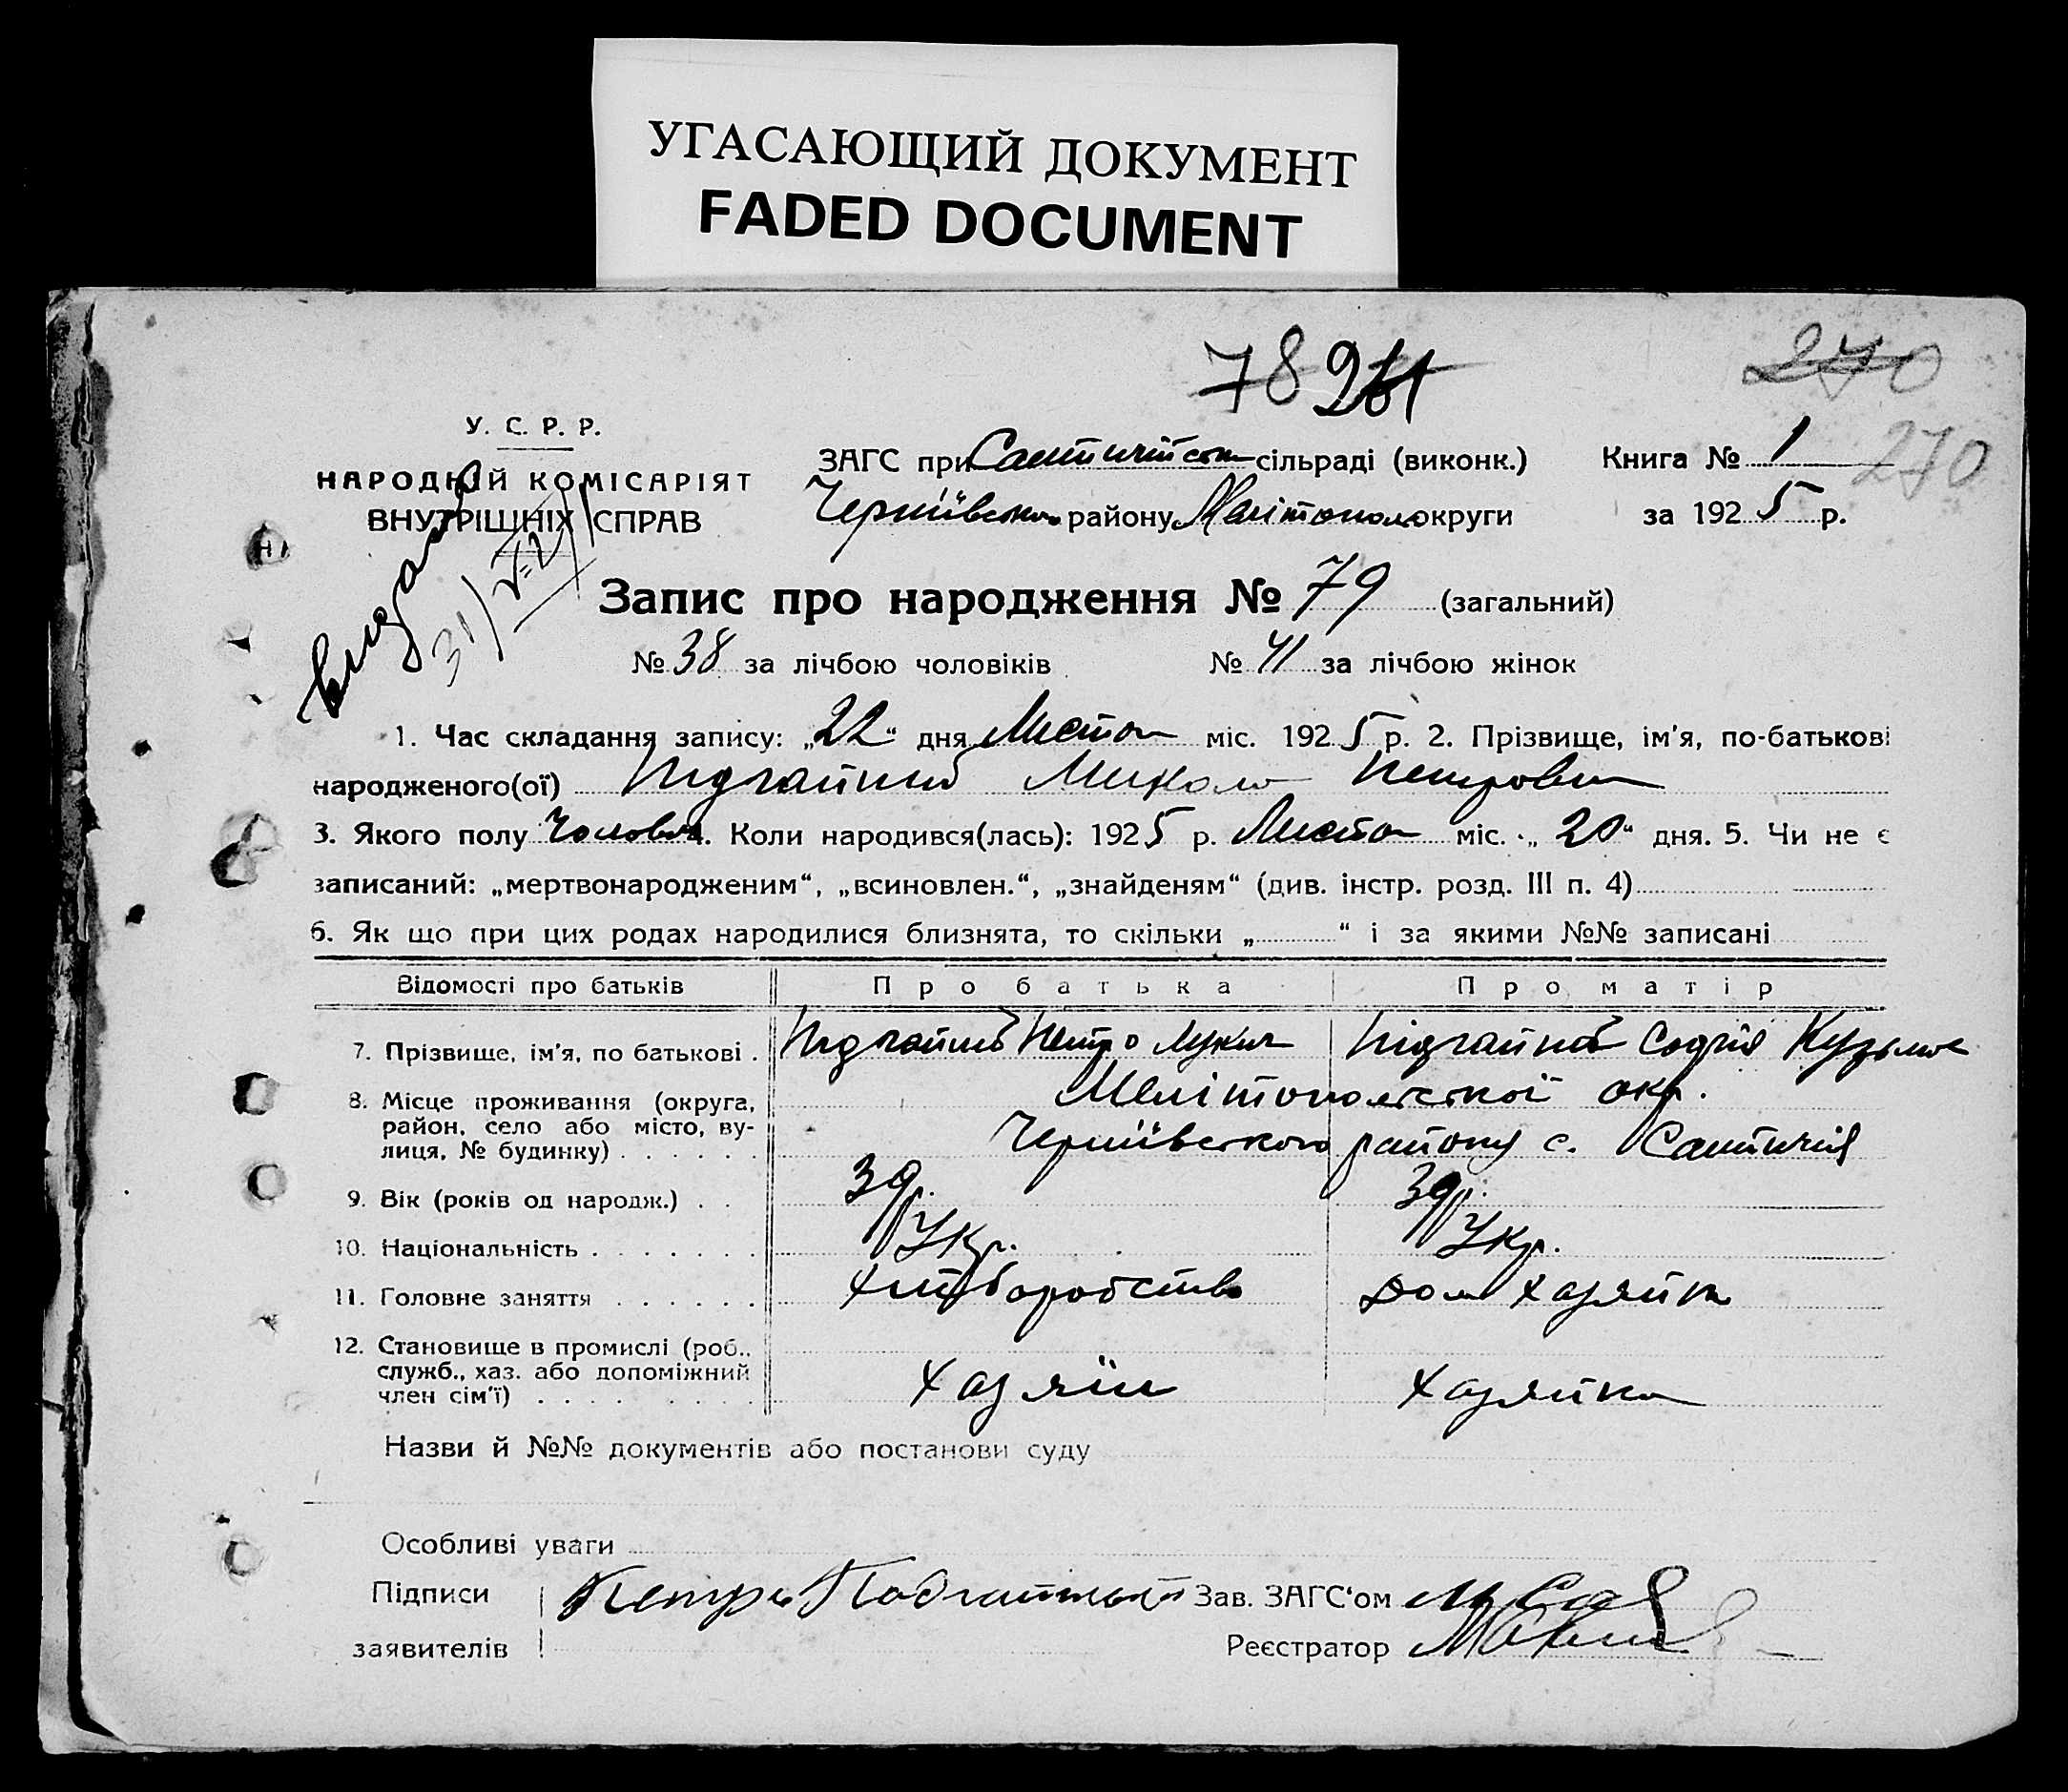 УГАСАЮЩИЙ ДОКУМЕНТ
FADED DOCUMENT
78
270
270
У. С. Р. Р.
НАРОДНІЙ КОМІСАРІЯТ
ВНУТРІШНІХ СПРАВ
ЗАГС при сільраді (виконк.)
Чернігівськ району Мелітопол округи
Книга № 1
за 1925 р.
Запис про народження № 79 (загальний)
№ 38 за лічбою чоловіків № 41 за лічбою жінок
1. Час складання запису: „22“ дня Листоп міс. 1925 р. 2. Прізвище, ім'я, по-батькові
народженого(ої) Підгайний Микола Петрович
3. Якого полу Чолов 4. Коли народився(лась): 1925 р. Листоп міс. „20“ дня. 5. Чи не є
записаний: „мертвонародженим“, „всиновлен.“, „знайденям“ (див. інстр. розд. III п. 4)
6. Як що при цих родах народилися близнята, то скільки „ “ і за якими №№ записані
Відомості про батьків Про батька Про матір
7. Прізвище, ім'я, по батькові . Підгайний Петро Лукич Підгайна Софія Кузьмов
8. Місце проживання (округа, Мелітопольської окр.
район, село або місто, ву-
лиця, № будинку) . . . . . . Чернігівського району с.
9. Вік (років од народж.) . . 39 р. 39 р.
10. Національність . . . . . . . Укр. Укр.
11. Головне заняття . . . . . . Хліборобство Дом Хазяйка
12. Становище в промислі (роб.,
служб., хаз. або допоміжний
член сім'ї) . . . . . . . . Хазяїн Хазяйка
Назви й №№ документів або постанови суду
Особливі уваги
Підписи
заявителів
Петро Подгайный
Зав. ЗАГС'ом
Реєстратор